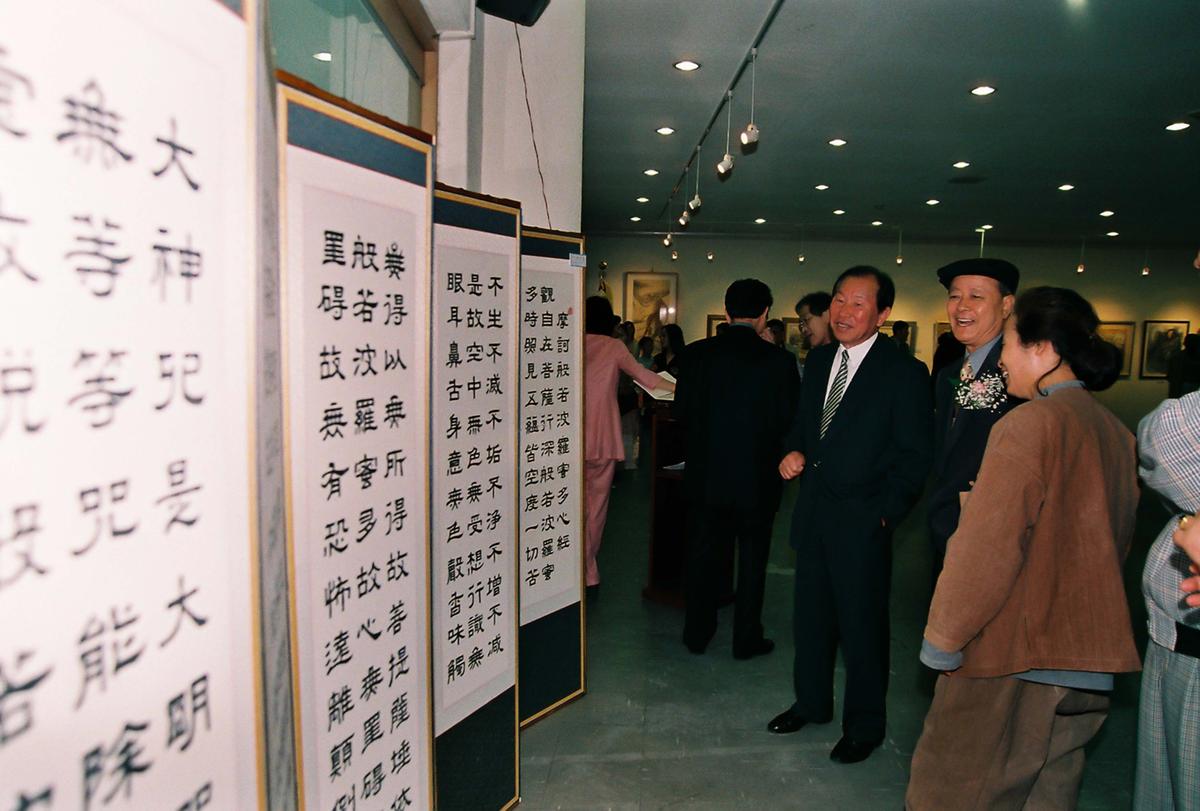 摩訶般若波羅蜜多心經
觀自在菩薩行深般若波羅蜜
多時照見五蘊皆空度一切苦
不生不滅不垢不淨不增不減
是故空中無色無受想行識無
眼耳鼻舌身意無色聲香味觸
無得以無所得故菩提薩埵依
般若波羅蜜多故心無罣碍
罣碍故無有恐怖遠離顛倒
大神呪是大明呪
無等等呪能除
虛故說般若